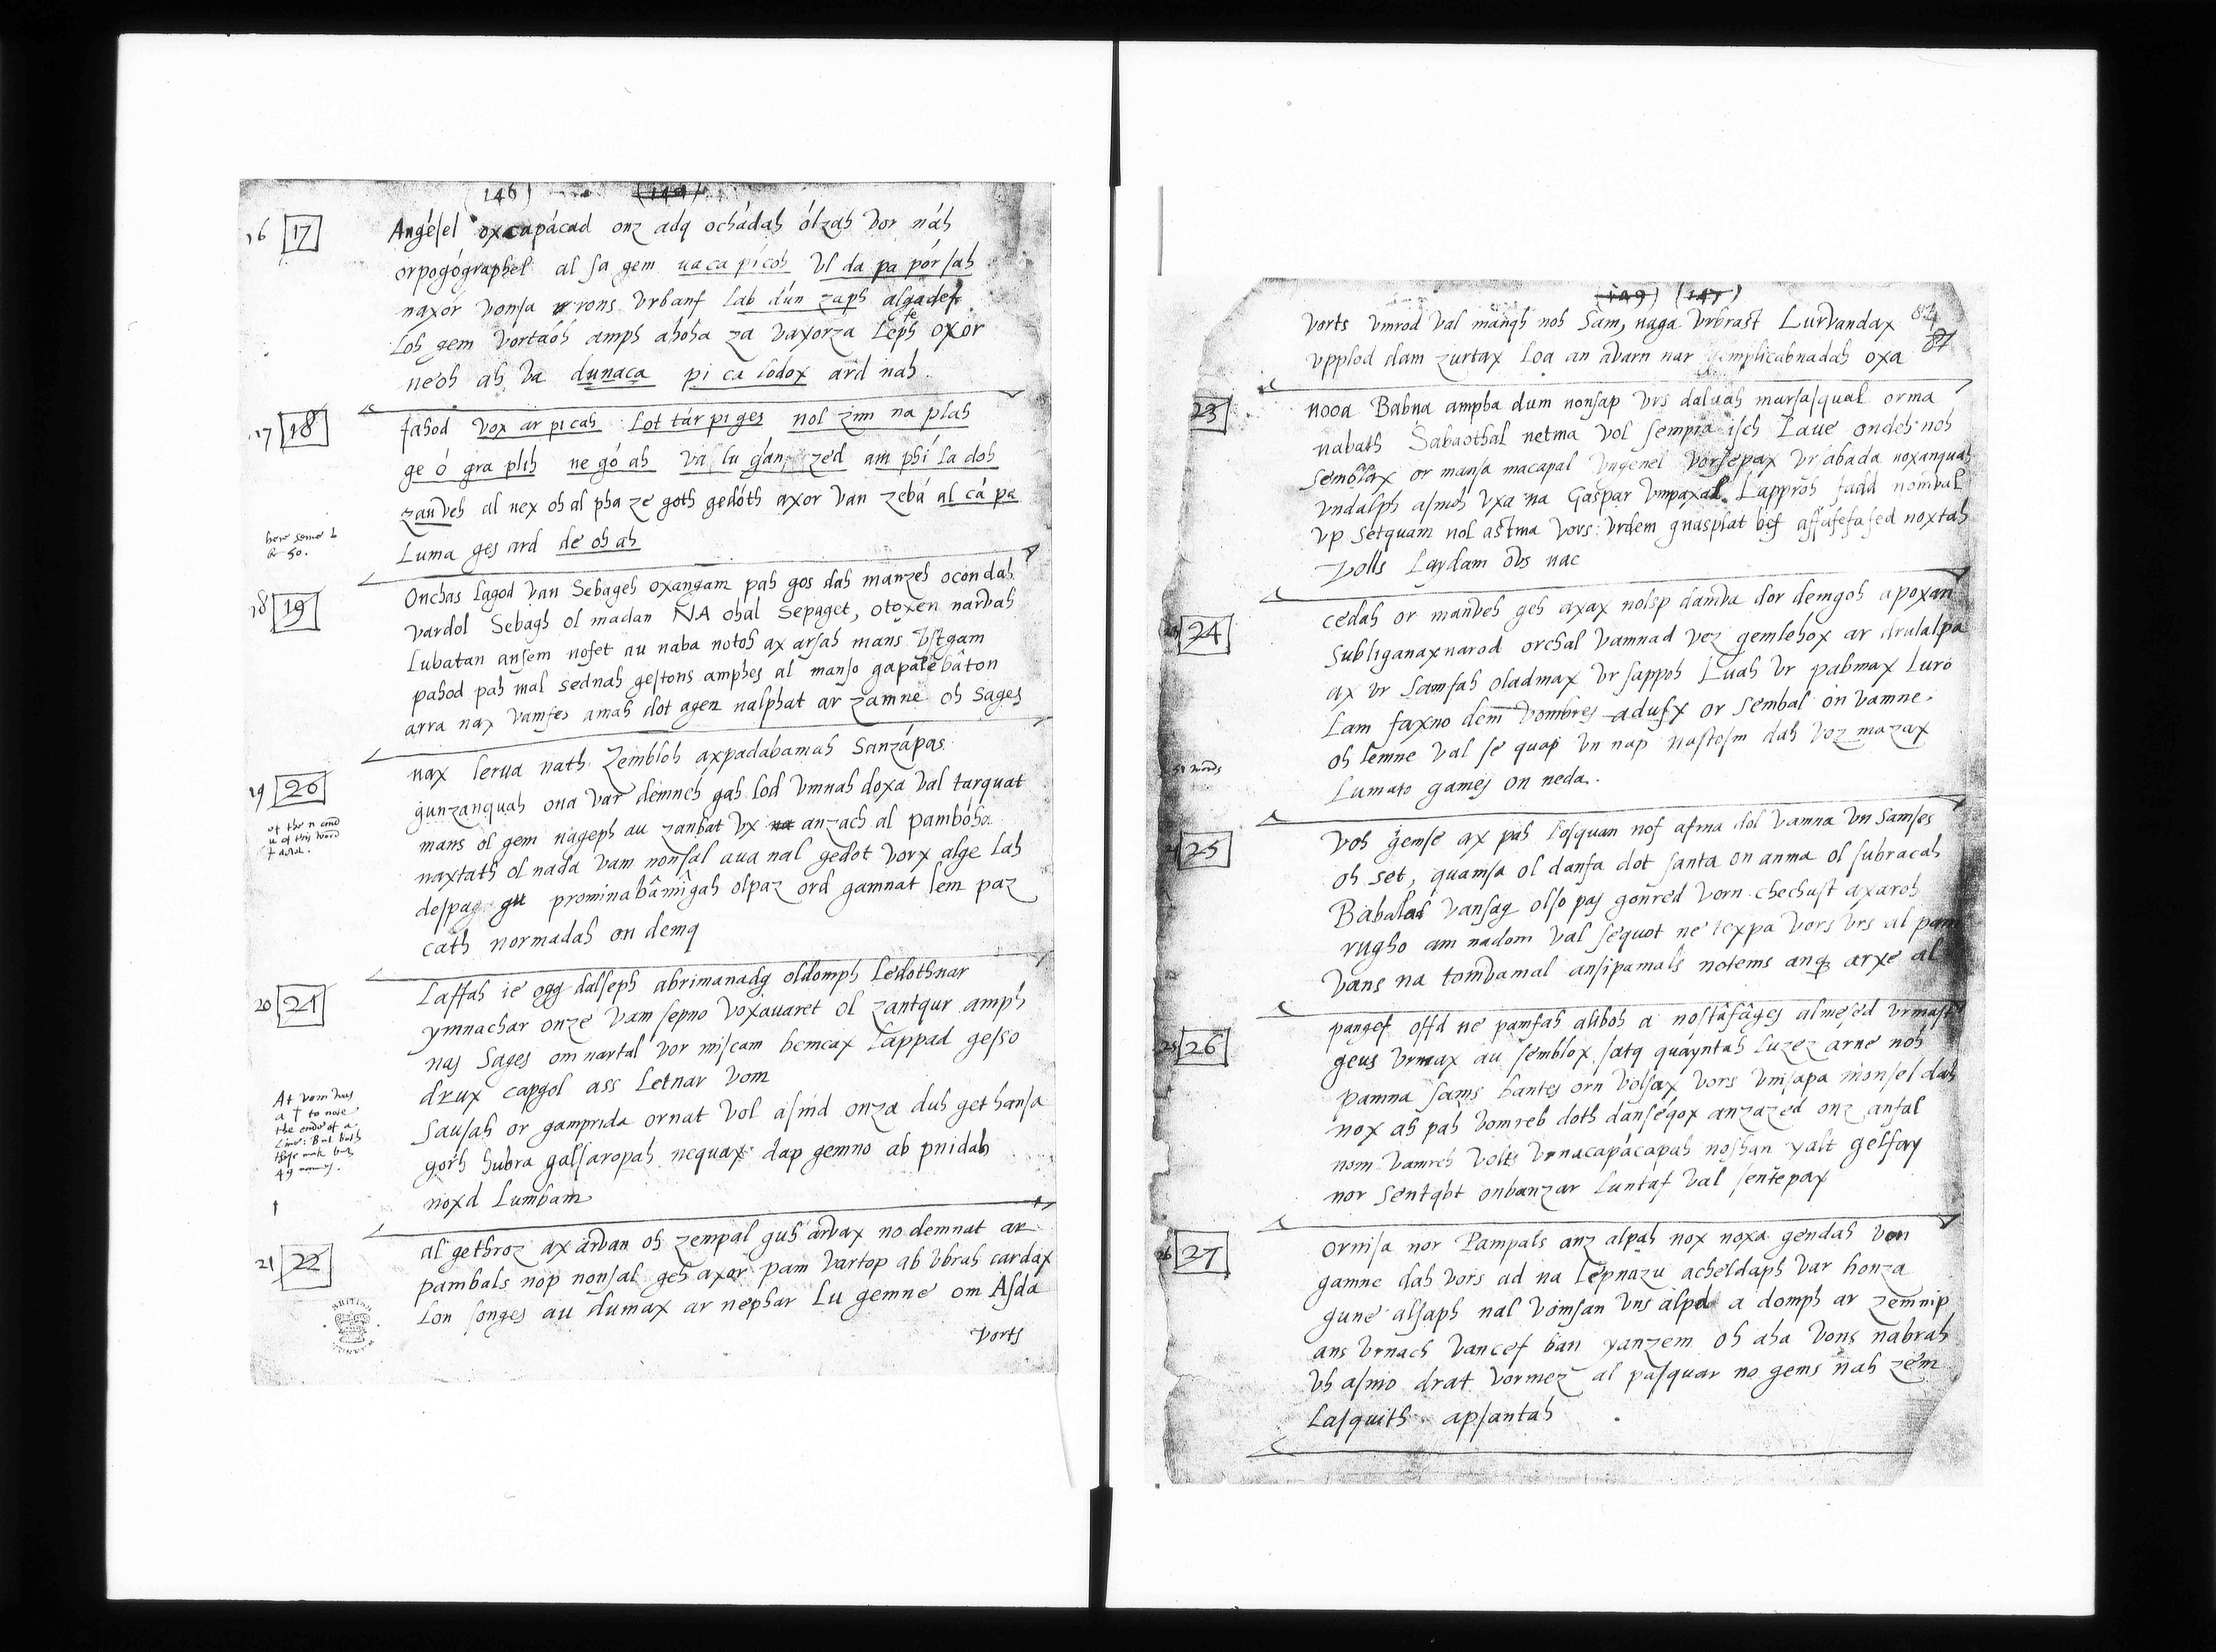 (146)
16 17 Angésel oxcapácad onz adq ochádah ólzah vor náh
orpogógraphel al sa gem uaca pícoh vl da pa pór sah
naxór vonsa rons vrbanf lab dún zaph algadef
loh gem vortáoh amph ahoha za vaxorza leph oxor
neoh ah va dunaca pi ca lodox ard nah
17 18 fahod vox ar pi cah lot tár pi ges nol zim na plah
ge ó gra plih ne gó ah va lu gán zed am phí la doh
zauveh al nex oh al pha ze goth gedóth axor van zebá al cá pa
Luma ges ard de oh ah
18 19 Onchas lagod van Sebageh oxangam pah gos dah manzeh ocondah
vardol Sebagh ol madan NIA ohal Sepaget, otoxen narvah
lubatan ansem nofet au naba notoh ax arsah mans vstgam
pahod pah mal sednah gestons amphes al manso gapalebâton
arra nax vamfes amah dot agen nalphat ar zamne oh sages
19 20 nax lerua nath Zembloh axpadabamah Sanzápas
gunzanquah ona var demneh gah lod vmnah doxa val tarquat
mans ol gem nageph au zanbat vx anzach al pambóha
naxtath ol nada vam nonsal aua nal gedot vorx alge lah
despaz prominabâmîgah olpaz ord gamnat lem paz
cath normadah on demq
20 21 Laffah ie ogg dalseph abrimanadg oldomph ledothnar
ymnachar onze vam sepno voxauaret ol zantqur amph
nas Sages om nartal vor miscam bemcax lappad gesso
drux capgol ass letnar vom
At vom was
a † to note
the ende of a
Line: But both
these make but
49 names.
†
Sausah or gamprida ornat vol asmd onza duh get hansa
goth hubra galsaropah nequax dap gemno ab pnidah
noxd lumbam
21 22 al gethroz ax arvan oh zempal guh arvax no demnat ar
pambals nop nonsal geh axor pam vartop ab vbrah cardax
lon songes au dumax ar nephar lu gemne om Asda
vorts
BRITISH
vorts vmrod val mangh noh Sam, naga vrbrast Lurvandax
vpplod dam zurtax loa an avarn nar gemplicabnadah oxa
84
87
23 nooa Babna ampha dum nonsap vrs daluah marsasqual orma
nabath Sabaothal netma vol sempra isch laue ondeh noh
semblax or mansa macapal vngenel vorsepax vr abada noxanquah
vndalph asmoh vxa na Gaspar vmpaxal lapproh jadd nomval
vp setquam nol astma vors vrdem gnasplat bef affafefafed noxtah
volls laydam ovs nac
24 cedah or manveh geh axax nolsp damva dor demgoh apoxan
subliganaxnarod orchal vamnad vez gemlehox ar drulalpa
ax vr samfah oladmax vr sappoh luah vr pabmax luro
lam faxno dem vombres adusx or sembal on vamne
oh lemne val se quap vn nap nastosm dah voz mazax
lumato games on neda.
25 voh gemse ax pah losquan nof afma dol vamna vn samses
oh set, quamsa ol danfa dot santa on anma ol subracah
Babalad vansag olso pas gonred vorn chechust axaroh
rugho am nadom val sequot ne texpa vors vrs al pam
vans na tomvamal ansipamals notems anq arxe al
26 pangef offd ne pamfah aliboh a nostâfâges almesed vrmast
geus vrmax au semblox satq quayntah luzez arne noh
pamna sams bantes orn volsax vors vnisapa monsel dah
nox ah pah vomreb doth danségox anzazed onz anfal
nom vamreh volts vrnacapácapah noshan yalt gelfay
nor sentqbt onbanzar luntaf val sentepax
26 27 ornisa nor Pampals anz alpah nox noxa gendah von
gamne dah vors ad na lepnazu acheldaph var honza
gune alsaph nal vomsan vns alpd a domph ar zemnip
ans vrnach vancef ban yanzem oh aha vons nabrah
vh asmo drat vormez al pasquar no gems nah zem
lasquith apsantah